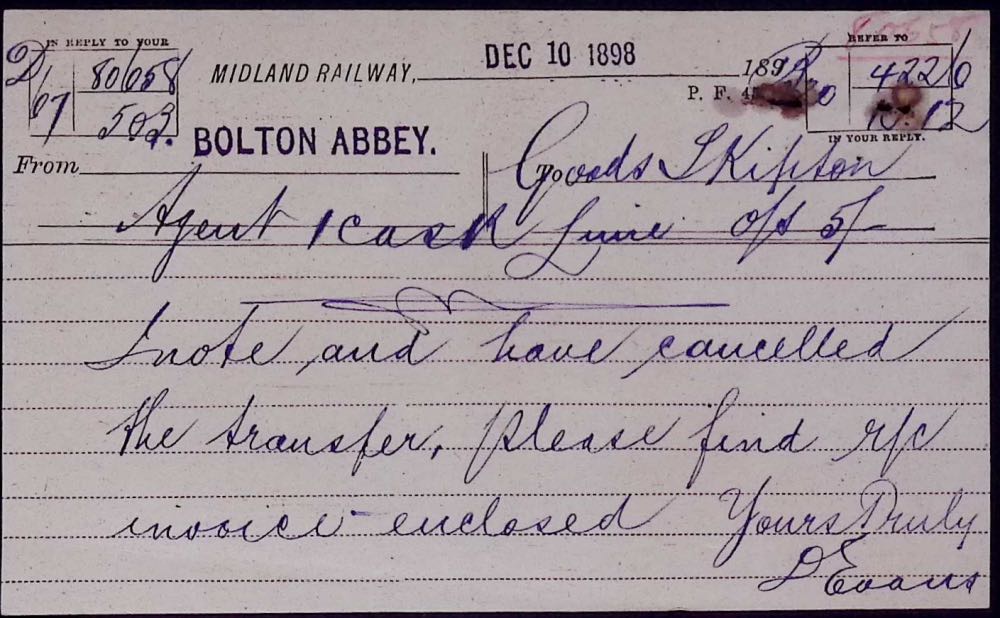 IN REPLY TO YOUR
REFER TO
80658
D/
97
503.
MIDLAND RAILWAY,
DEC 10 1898
189
P. F.
4226
10.12
IN YOUR REPLY.
BOLTON ABBEY.
From
To
Goods Skipton
Agent 1 cask Lime o/s 5/-
I note, and have cancelled
the transfer, please find r/c
invoice enclosed Yours Truly
D Evans